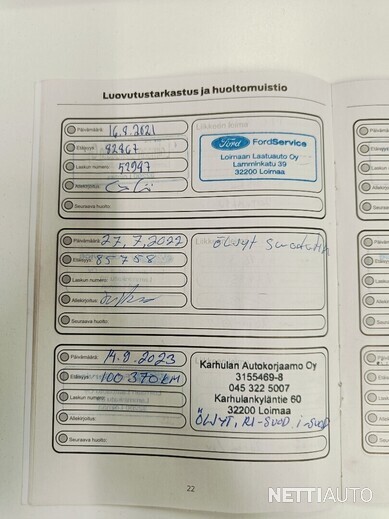 Luovutustarkastus ja huoltomuistio
Päivämäärä: 16.8.2021
Etäisyys: 82867
Laskun numero: 52947
Allekirjoitus:
Seuraava huolto:
Liikkeen leima
Ford FordService
Loimaan Laatuauto Oy
Lamminkatu 39
32200 Loimaa
Päivämäärä: 27.7.2022
Etäisyys: 85758
Laskun numero:
Allekirjoitus:
Seuraava huolto:
Öljyt
Päivämäärä: 14.9.2023
Etäisyys: 100 370 KM
Laskun numero:
Allekirjoitus:
Seuraava huolto:
Karhulan Autokorjaamo Oy
3155469-8
045 322 5007
Karhulankyläntie 60
32200 Loimaa
ÖLJYT, RI-SUOD, i-SUOD
22
NETTIAUTO